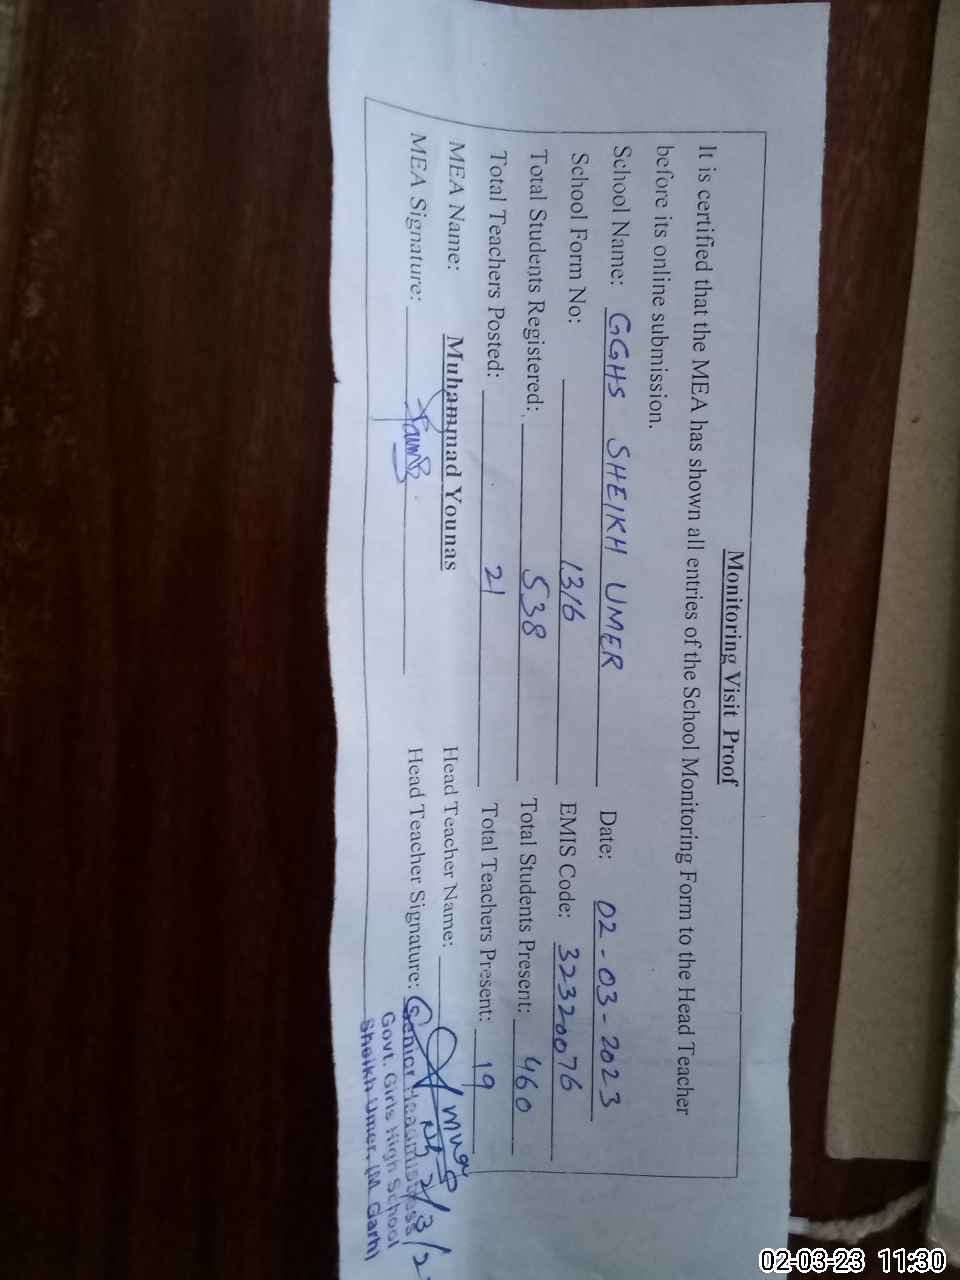 Monitoring Visit Proof
It is certified that the MEA has shown all entries of the School Monitoring Form to the Head Teacher
before its online submission.
School Name: GGHS SHEIKH UMER Date: 02-03-2023
School Form No: 1316 EMIS Code: 32320076
Total Students Registered: 538 Total Students Present: 460
Total Teachers Posted: 21 Total Teachers Present: 19
MEA Name: Muhammad Younas Head Teacher Name:
MEA Signature: Head Teacher Signature:
Senior Headmistress
Govt. Girls High School
Sheikh Umer (M. Garh)
02-03-23 11:30